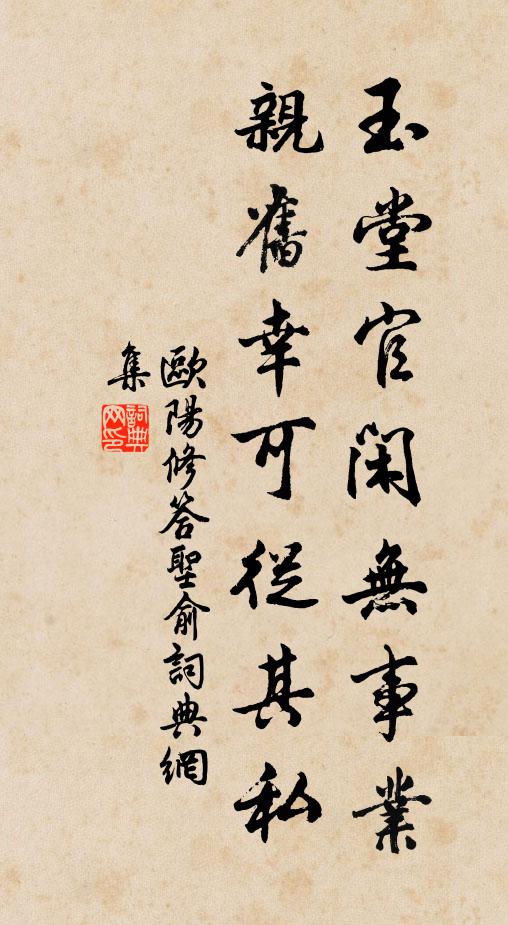 玉堂官閑無事業
親舊幸可從其私
歐陽修答聖俞詞典網
集
詞典
网印